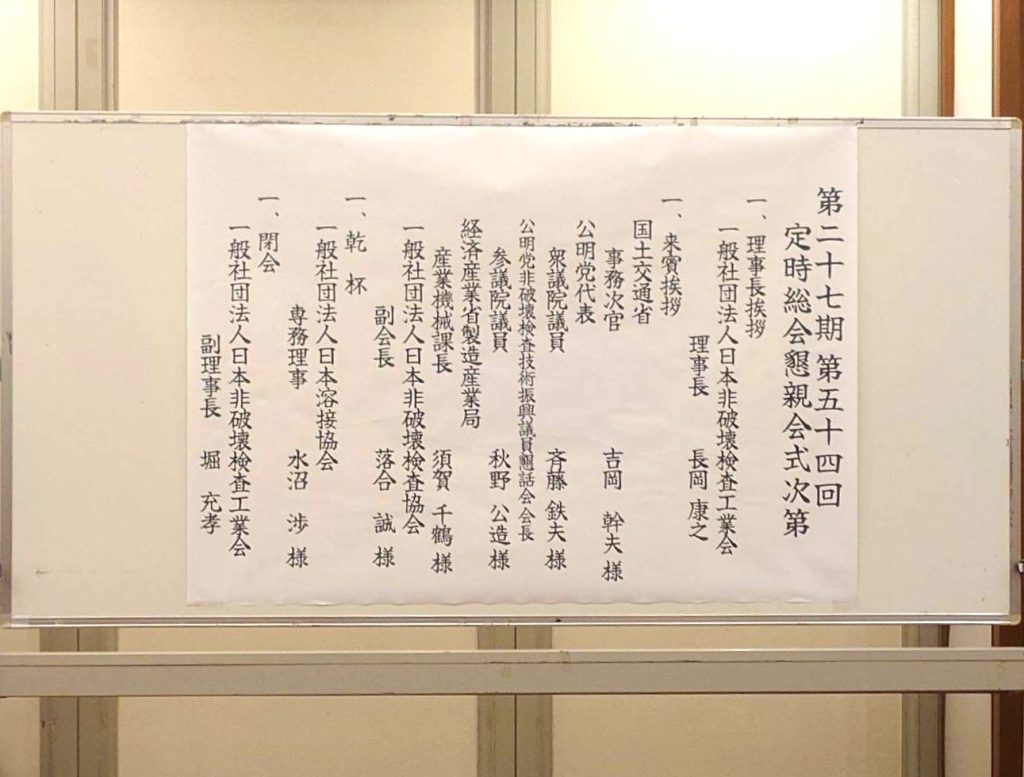 第二十七期 第五十四回
定時総会懇親会式次第
一、理事長挨拶
一般社団法人日本非破壊検査工業会
理事長 長岡 康之
一、来賓挨拶
国土交通省
事務次官 吉岡 幹夫 様
公明党代表
衆議院議員 斉藤 鉄夫 様
公明党非破壊検査技術振興議員懇話会会長
参議院議員 秋野 公造 様
経済産業省製造産業局
産業機械課長 須賀 千鶴 様
一般社団法人日本非破壊検査協会
副会長 落合 誠 様
一、乾杯
一般社団法人日本溶接協会
専務理事 水沼 渉 様
一、閉会
一般社団法人日本非破壊検査工業会
副理事長 堀 充孝